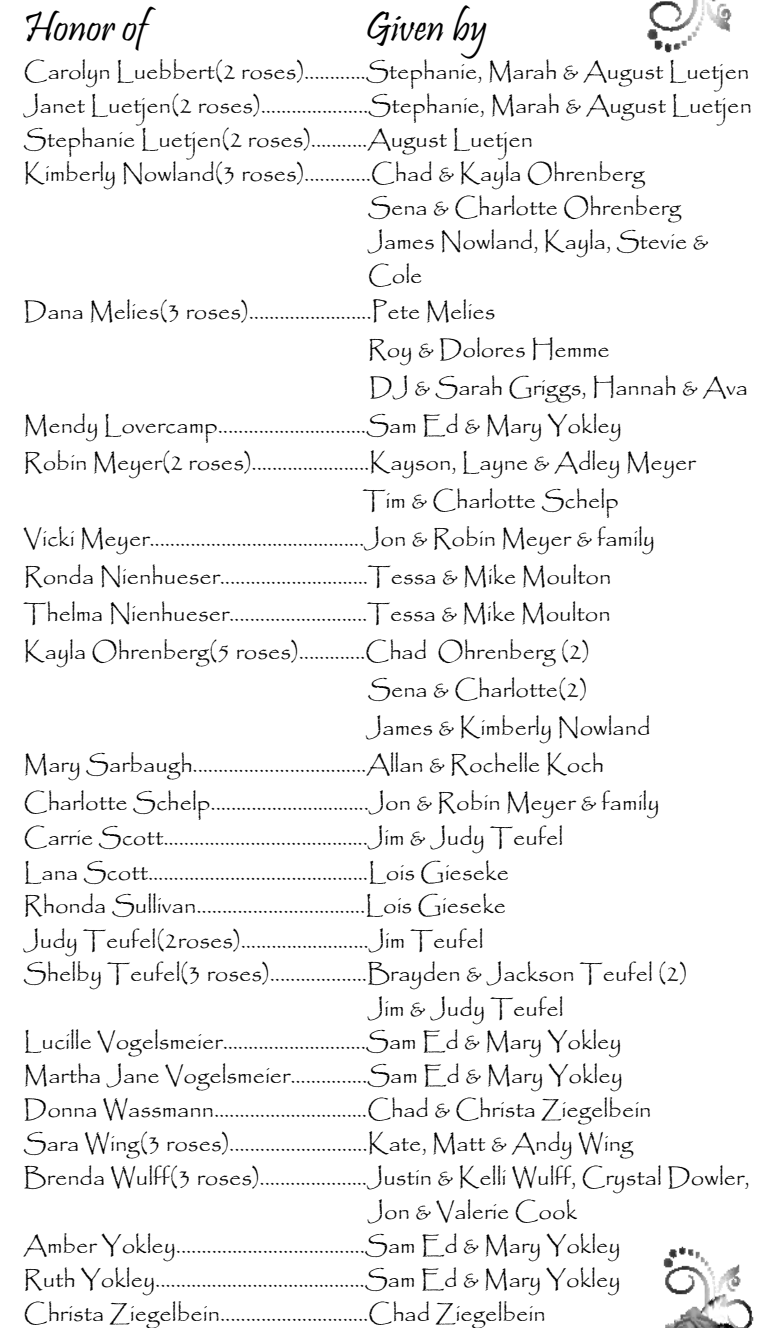 Honor of Given by
Carolyn Luebbert(2 roses)............Stephanie, Marah & August Luetjen
Janet Luetjen(2 roses).....................Stephanie, Marah & August Luetjen
Stephanie Luetjen(2 roses)...........August Luetjen
Kimberly Nowland(3 roses).............Chad & Kayla Ohrenberg
Sena & Charlotte Ohrenberg
James Nowland, Kayla, Stevie &
Cole
Dana Melies(3 roses)........................Pete Melies
Roy & Dolores Hemme
DJ & Sarah Griggs, Hannah & Ava
Mendy Lovercamp.............................Sam Ed & Mary Yokley
Robin Meyer(2 roses).......................Kayson, Layne & Adley Meyer
Tim & Charlotte Schelp
Vicki Meyer..........................................Jon & Robin Meyer & family
Ronda Nienhueser.............................Tessa & Mike Moulton
Thelma Nienhueser...........................Tessa & Mike Moulton
Kayla Ohrenberg(5 roses).............Chad Ohrenberg (2)
Sena & Charlotte(2)
James & Kimberly Nowland
Mary Sarbaugh..................................Allan & Rochelle Koch
Charlotte Schelp...............................Jon & Robin Meyer & family
Carrie Scott........................................Jim & Judy Teufel
Lana Scott...........................................Lois Gieseke
Rhonda Sullivan.................................Lois Gieseke
Judy Teufel(2roses).........................Jim Teufel
Shelby Teufel(3 roses)...................Brayden & Jackson Teufel (2)
Jim & Judy Teufel
Lucille Vogelsmeier............................Sam Ed & Mary Yokley
Martha Jane Vogelsmeier...............Sam Ed & Mary Yokley
Donna Wassmann..............................Chad & Christa Ziegelbein
Sara Wing(3 roses)...........................Kate, Matt & Andy Wing
Brenda Wulff(3 roses).....................Justin & Kelli Wulff, Crystal Dowler,
Jon & Valerie Cook
Amber Yokley.....................................Sam Ed & Mary Yokley
Ruth Yokley.........................................Sam Ed & Mary Yokley
Christa Ziegelbein.............................Chad Ziegelbein